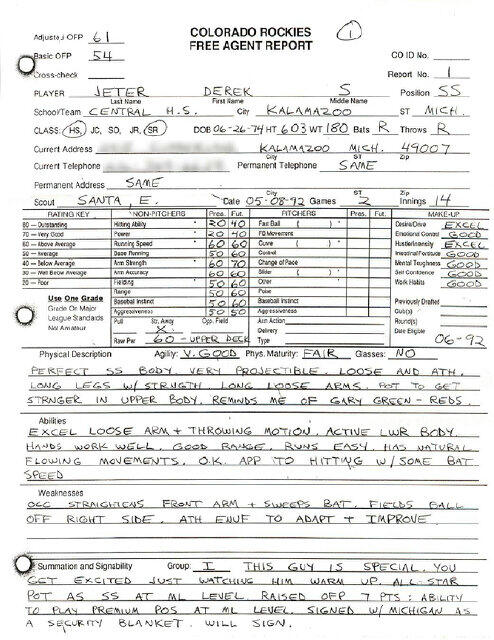 COLORADO ROCKIES
FREE AGENT REPORT
1
Adjusted OFP 61
Basic OFP 54
CO ID No.
Cross-check
Report No. 1
PLAYER JETER DEREK S Position SS
Last Name First Name Middle Name
School/Team CENTRAL H.S. City KALAMAZOO ST MICH.
CLASS: HS, JC, SO, JR, SR DOB 06-26-74 HT 603 WT 180 Bats R Throws R
Current Address KALAMAZOO MICH. 49007
City ST Zip
Current Telephone Permanent Telephone SAME
Permanent Address SAME
City ST Zip
Scout SANTA, E. Date 05-08-92 Games 2 Innings 14
RATING KEY NON-PITCHERS Pres. Fut. PITCHERS Pres. Fut. MAKE-UP
80 — Outstanding Hitting Ability 20 40 Fast Ball ( ) Desire/Drive EXCEL
70 — Very Good Power 20 40 FB Movement Emotional Control GOOD
60 — Above Average Running Speed 60 60 Curve ( ) Hustle/Intensity EXCEL
50 — Average Base Running 50 60 Control Instinct/Feature GOOD
40 — Below Average Arm Strength 60 70 Change of Pace Mental Toughness GOOD
30 — Well Below Average Arm Accuracy 60 60 Slider ( ) Self Confidence GOOD
20 — Poor Fielding 50 60 Other Work Habits GOOD
Range 50 60 Poise
Use One Grade Baseball Instinct 50 60 Baseball Instinct Previously Drafted
Grade On Major Aggressiveness 50 60 Aggressiveness Club(s)
League Standards Pull Str. Away Opp. Field Arm Action Round(s)
Not Amateur X Delivery Date Eligible
Raw Pwr 60 - UPPER DECK Type 06-92
Physical Description Agility: V. GOOD Phys. Maturity: FAIR Glasses: NO
PERFECT SS BODY. VERY PROJECTIBLE. LOOSE AND ATH.
LONG LEGS W/ STRNGTH. LONG LOOSE ARMS. POT TO GET
STRNGER IN UPPER BODY. REMINDS ME OF GARY GREEN - REDS.
Abilities
EXCEL LOOSE ARM + THROWING MOTION. ACTIVE LWR BODY.
HANDS WORK WELL. GOOD RANGE. RUNS EASY. HAS NATURAL
FLOWING MOVEMENTS. O.K. APP TO HITTING W/ SOME BAT
SPEED
Weaknesses
OCC STRAIGHTENS FRONT ARM + SWEEPS BAT. FIELDS BALL
OFF RIGHT SIDE. ATH ENUF TO ADAPT + IMPROVE
Summation and Signability Group: I THIS GUY IS SPECIAL. YOU
GET EXCITED JUST WATCHING HIM WARM UP. ALL-STAR
POT AS SS AT ML LEVEL. RAISED OFP 7 PTS: ABILITY
TO PLAY PREMIUM POS AT ML LEVEL. SIGNED W/ MICHIGAN AS
A SECURITY BLANKET. WILL SIGN.